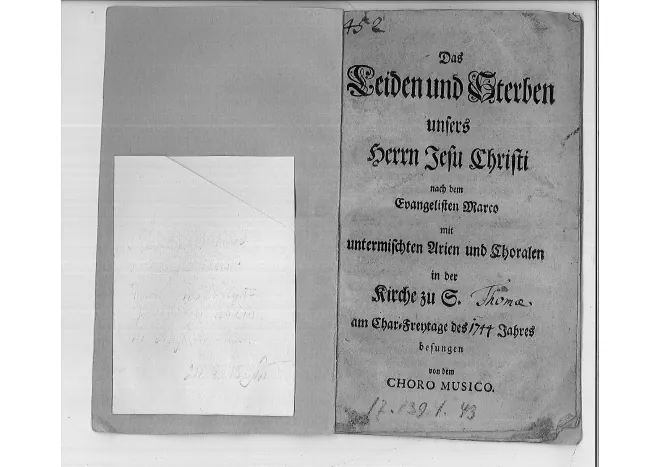 452
Das
Leiden und Sterben
unsers
Herrn Jesu Christi
nach dem
Evangelisten Marco
mit
untermischten Arien und Choralen
in der
Kirche zu S. Thomæ.
am Char-Freytage des 1744 Jahres
besungen
von dem
CHORO MUSICO.